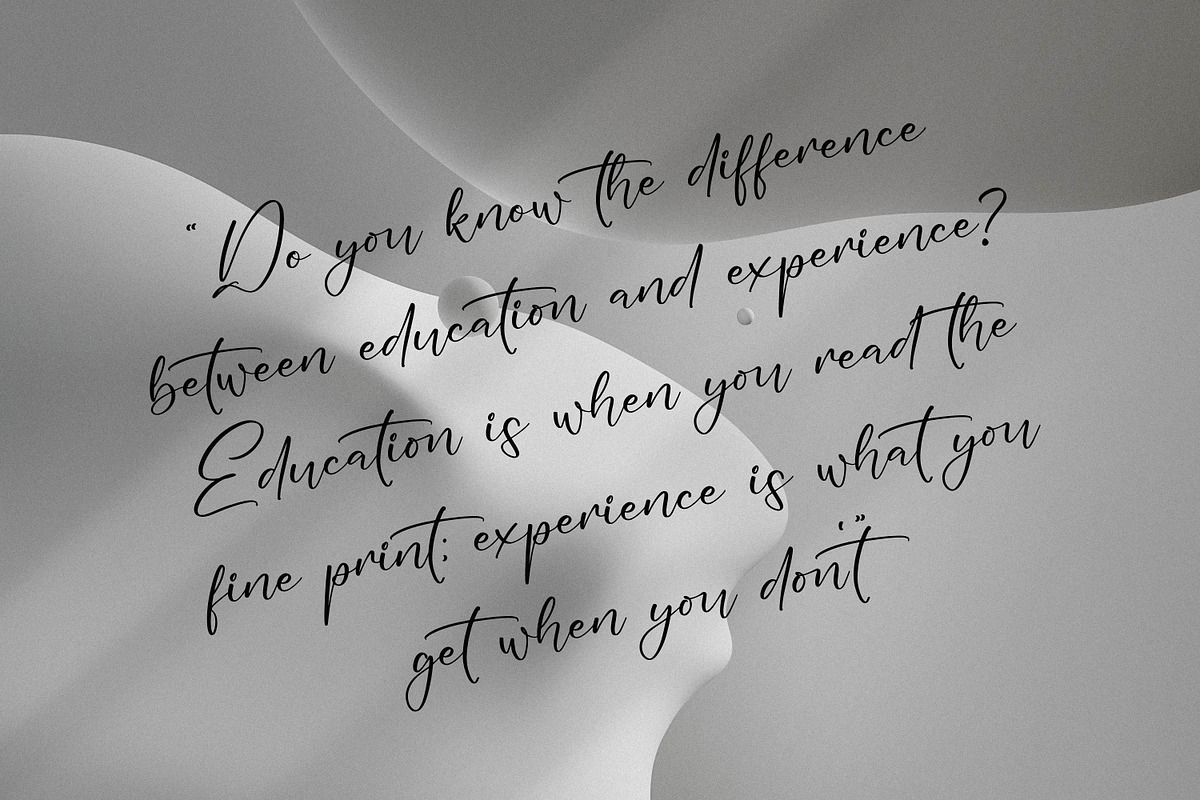 “Do you know the difference
between education and experience?
Education is when you read the
fine print; experience is what you
get when you don't”